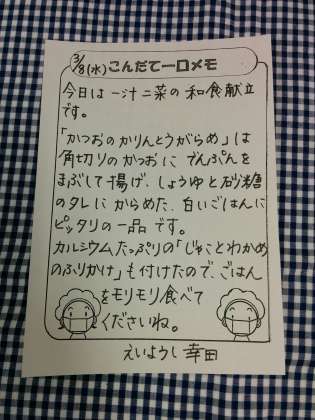 3/8(水)こんだて一口メモ
今日は一汁二菜の和食献立
です。
「かつおのかりんとうがらめ」は
角切りのかつおにでんぷんを
まぶして揚げ、しょうゆと砂糖
のタレにからめた、白いごはんに
ピッタリの一品です。
カルシウムたっぷりの「じゃことわかめ
のふりかけ」も付けたので、ごはん
をモリモリ食べて
くださいね。
えいようし 幸田